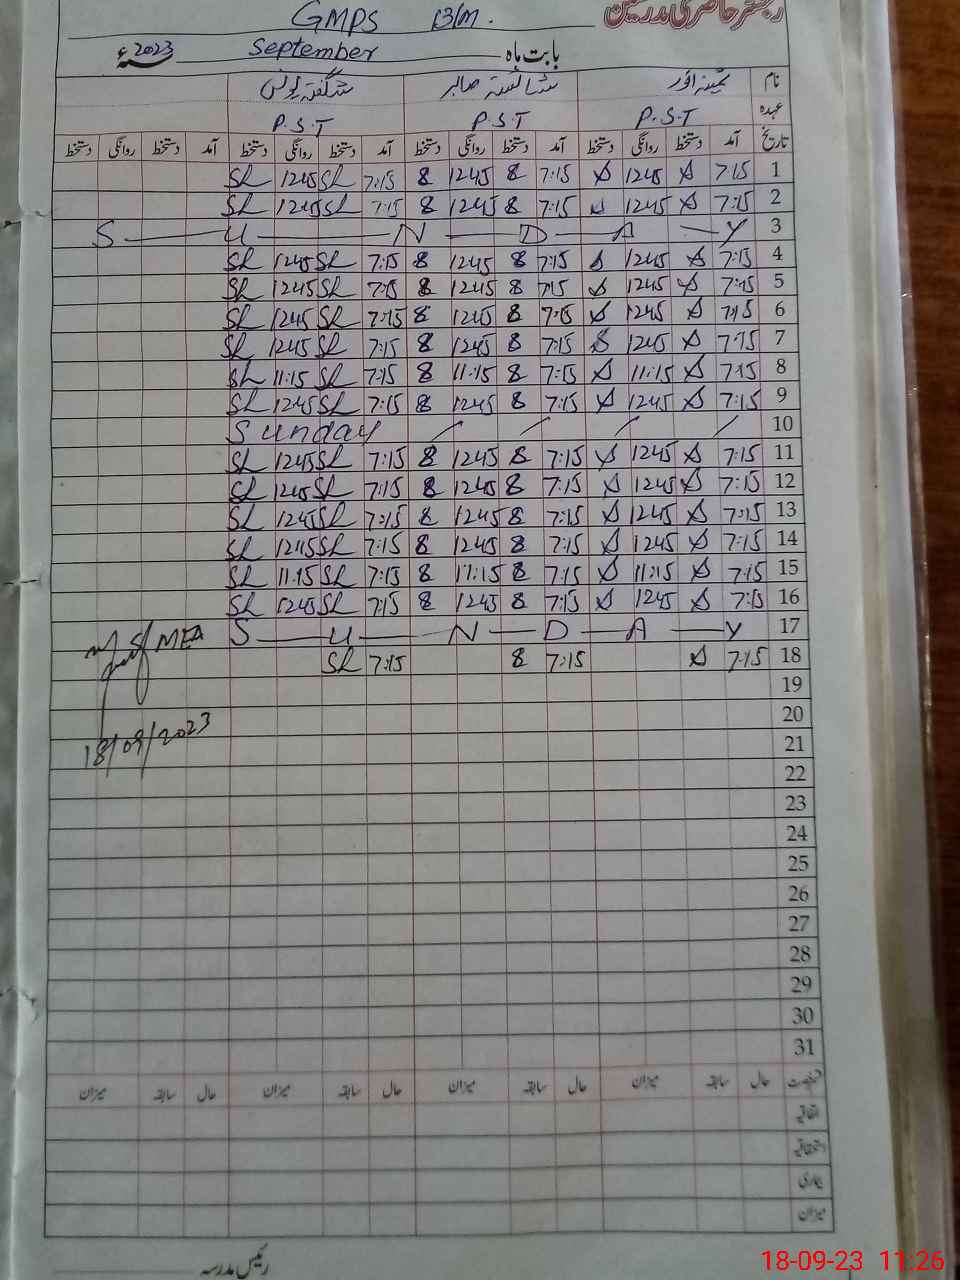 رجسٹر حاضری مدرسین
GMPS 13/M.
بابت ماہ September سنہ 2023ء
نام ثمینہ انور شائستہ صابر شگفتہ یونس
عہدہ P.S.T P.S.T P.S.T
تاریخ آمد دستخط روانگی دستخط آمد دستخط روانگی دستخط آمد دستخط روانگی دستخط آمد دستخط روانگی دستخط
1 7:15 1245 7:15 8 1245 8 7:15 SL 1245 SL
2 7:15 1245 7:15 8 1245 8 7:15 SL 1245 SL
3 S U N D A Y
4 7:15 1245 7:15 8 1245 8 7:15 SL 1245 SL
5 7:15 1245 7:15 8 1245 8 7:15 SL 1245 SL
6 7:15 1245 7:15 8 1245 8 7:15 SL 1245 SL
7 7:15 1245 7:15 8 1245 8 7:15 SL 1245 SL
8 7:15 11:15 7:15 8 11:15 8 7:15 SL 11:15 SL
9 7:15 1245 7:15 8 1245 8 7:15 SL 1245 SL
10 Sunday
11 7:15 1245 7:15 8 1245 8 7:15 SL 1245 SL
12 7:15 1245 7:15 8 1245 8 7:15 SL 1245 SL
13 7:15 1245 7:15 8 1245 8 7:15 SL 1245 SL
14 7:15 1245 7:15 8 1245 8 7:15 SL 1245 SL
15 7:15 11:15 7:15 8 11:15 8 7:15 SL 11:15 SL
16 7:15 1245 7:15 8 1245 8 7:15 SL 1245 SL
17 S U N D A Y
MEA
18 7:15 7:15 8 7:15 SL
19
20
18/09/2023
21
22
23
24
25
26
27
28
29
30
31
رخصت حال سابقہ میزان حال سابقہ میزان حال سابقہ میزان حال سابقہ میزان
اتفاقیہ
استحقاقیہ
بیماری
میزان
رئیس مدرسہ
18-09-23 11:26